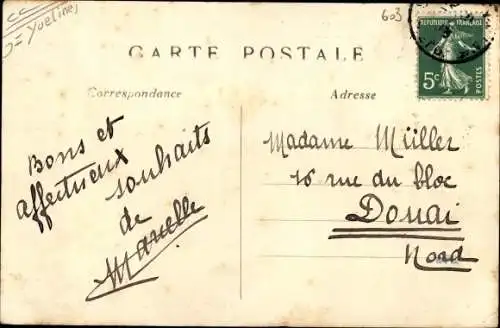 CC
D= Yvelines
603
CARTE POSTALE
RÉPUBLIQUE FRANÇAISE
5c
POSTES
Correspondance
Adresse
Bons et
affectueux
souhaits
de
Marcelle
Madame Müller
16 rue du bloc
Douai
Nord